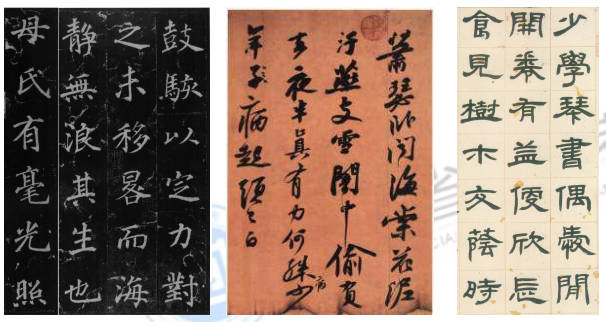 鼓駭以定力對
之未移晷而海
靜無浪其生也
母氏有毫光照
蕭瑟卧聞海棠花泥
汙燕支雪闇中偷負
去夜半真有力何殊少
病
年子病起頭已白
少學琴書偶愛閒
開卷有益便欣辰
食見樹木交蔭時